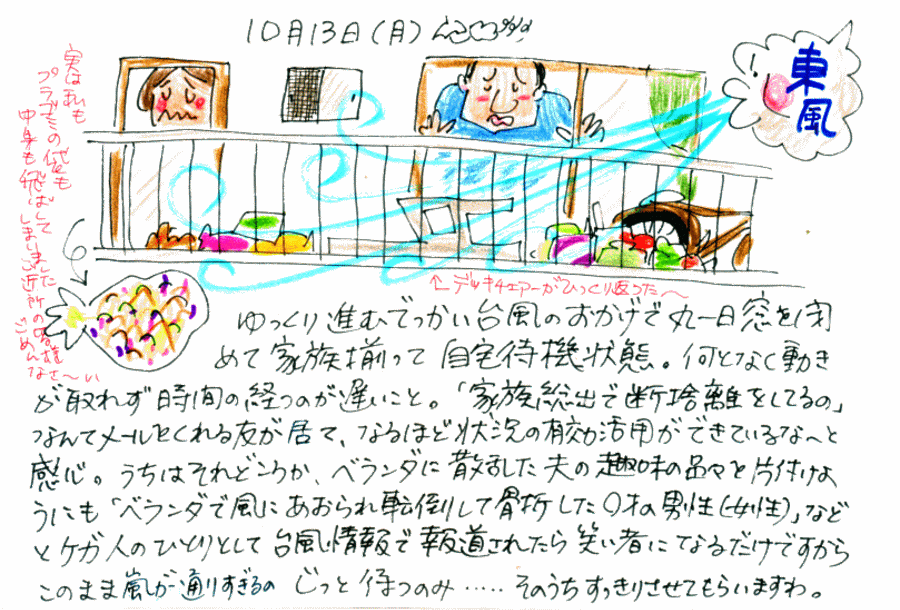 10月13日(月)
東風
実はあいも
プラゴミの袋も
中身も飛ばして
しまいましたご近所の皆様
ごめんなさ〜い
←デッキチェアーがひっくり返った〜
ゆっくり進むでっかい台風のおかげで丸一日窓を閉
めて家族揃って自宅待機状態。何となく動き
が取れず時間の経つのが遅いこと。「家族総出で断捨離をしてるの」
なんてメールをくれる友が居て、なるほど状況の有効活用ができているな〜と
感心。うちはそれどころか、ベランダに散乱した夫の趣味の品々を片付けよ
うにも「ベランダで風にあおられ転倒して骨折した〇才の男性(女性)」など
とケガ人のひとりとして台風情報で報道されたら笑い者になるだけですから
このまま嵐が通りすぎるの じっと待つのみ…‥ そのうちすっきりさせてもらいますわ。